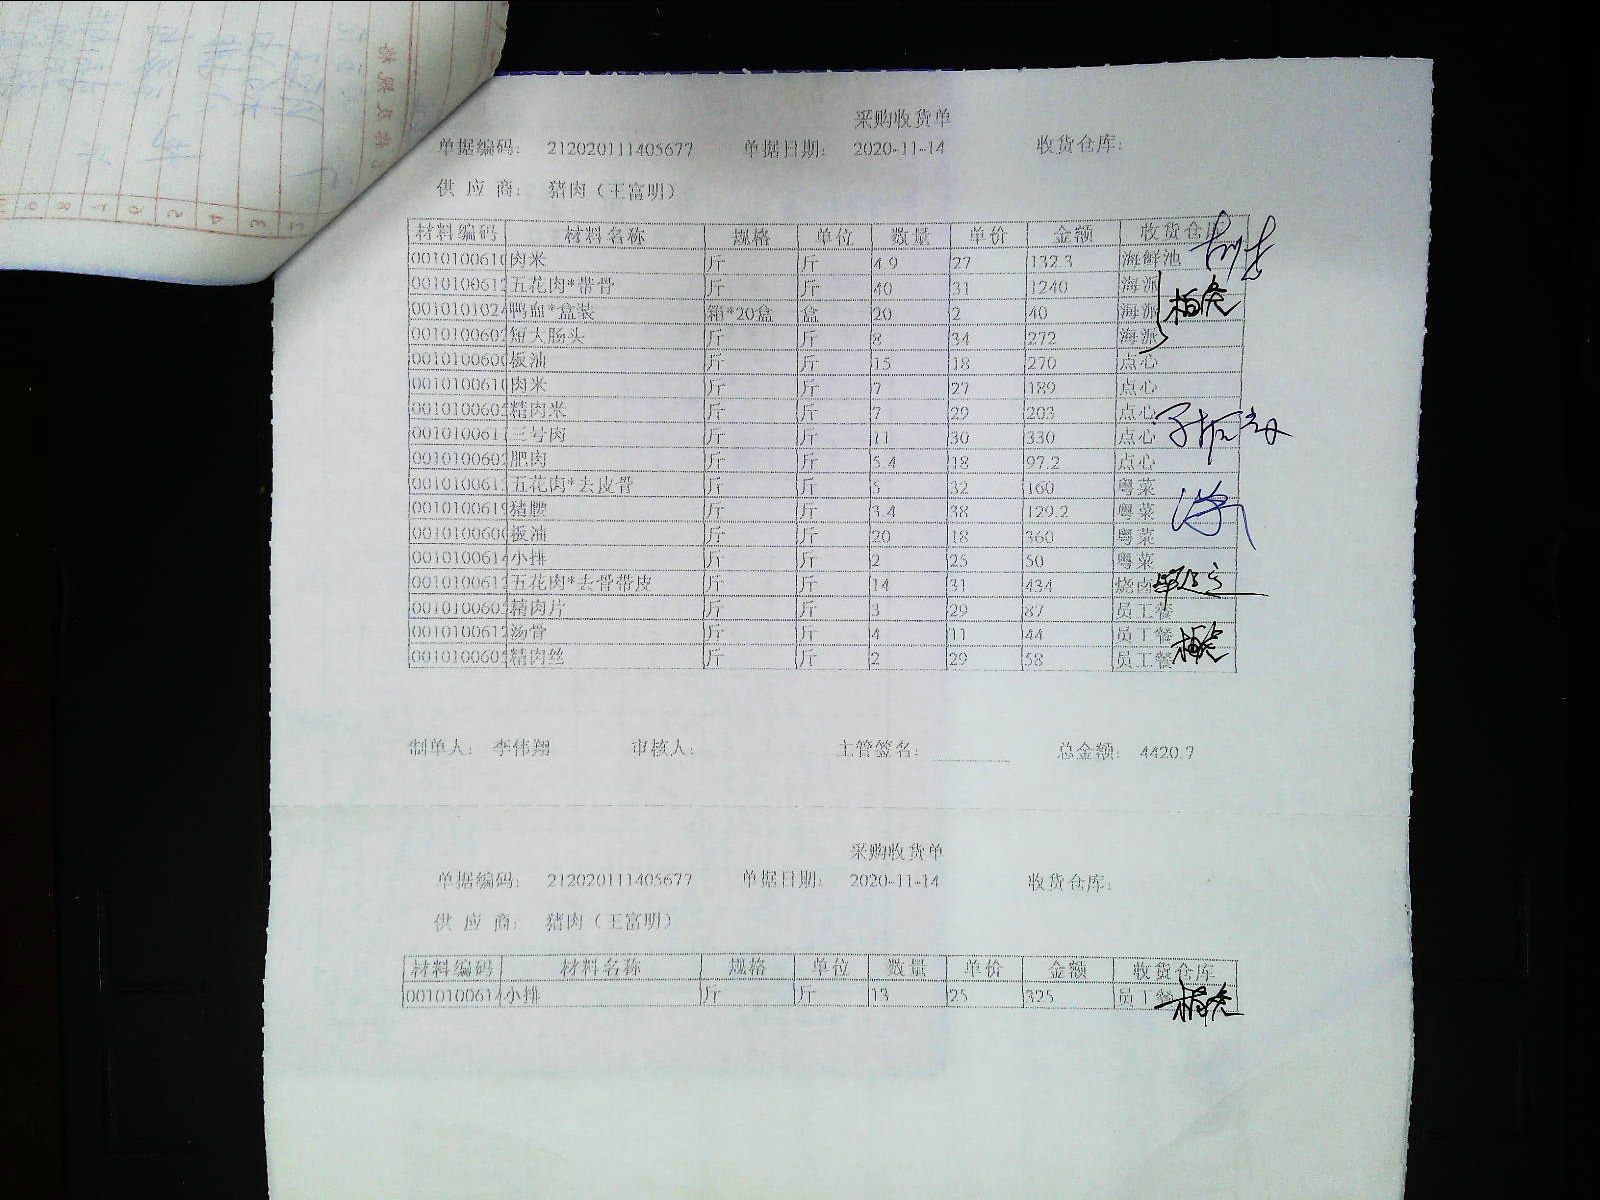 采购收货单
单据编码: 212020111405677 单据日期: 2020-11-14 收货仓库:
供 应 商: 猪肉（王富明）
材料编码 材料名称 规格 单位 数量 单价 金额 收货仓库
001010061 肉米 斤 斤 4.9 27 132.3 海鲜池
001010061 五花肉*带骨 斤 斤 40 31 1240 海派
001010102 鸭血*盒装 箱*20盒 盒 20 2 40 海派
001010060 短大肠头 斤 斤 8 34 272 海派
001010060 板油 斤 斤 15 18 270 点心
001010061 肉米 斤 斤 7 27 189 点心
001010060 精肉米 斤 斤 7 29 203 点心
001010061 三号肉 斤 斤 11 30 330 点心
001010060 肥肉 斤 斤 5.4 18 97.2 点心
001010061 五花肉*去皮骨 斤 斤 5 32 160 粤菜
001010061 猪腰 斤 斤 3.4 38 129.2 粤菜
001010060 板油 斤 斤 20 18 360 粤菜
001010061 小排 斤 斤 2 25 50 粤菜
001010061 五花肉*去骨带皮 斤 斤 14 31 434 烧卤
001010060 精肉片 斤 斤 3 29 87 员工餐
001010061 汤骨 斤 斤 4 11 44 员工餐
001010060 精肉丝 斤 斤 2 29 58 员工餐
制单人: 李伟翔 审核人: 主管签名: 总金额: 4420.7
采购收货单
单据编码: 212020111405677 单据日期: 2020-11-14 收货仓库:
供 应 商: 猪肉（王富明）
材料编码 材料名称 规格 单位 数量 单价 金额 收货仓库
001010061 小排 斤 斤 13 25 325 员工餐